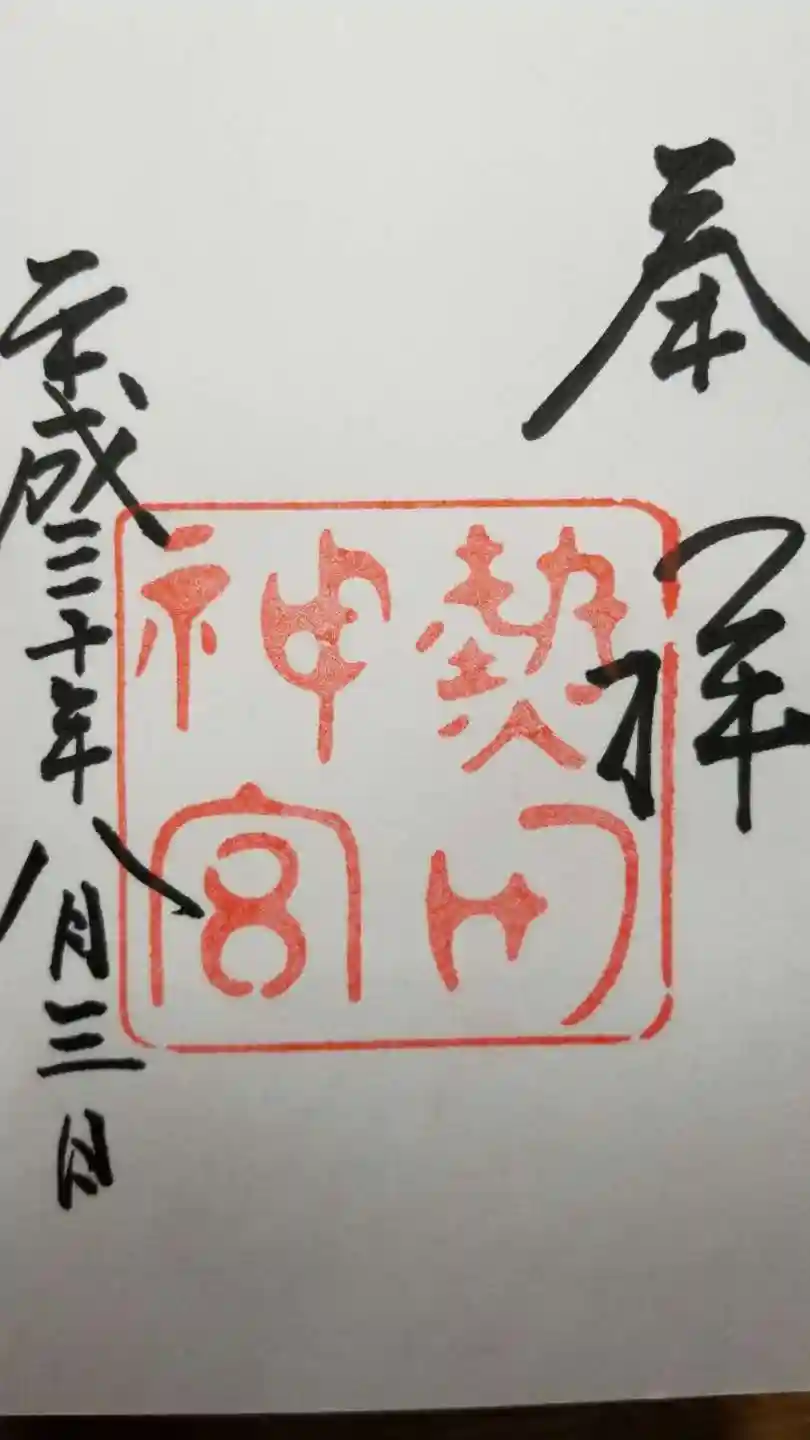 奉拝
熱田神宮
平成三十年八月三日